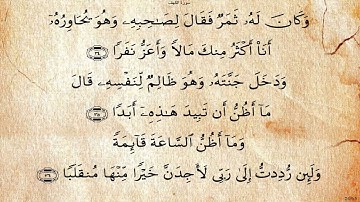 سورة الكهف
وَكَانَ لَهُۥ ثَمَرٌ فَقَالَ لِصَـٰحِبِهِۦ وَهُوَ يُحَاوِرُهُۥٓ
أَنَا۠ أَكْثَرُ مِنكَ مَالًا وَأَعَزُّ نَفَرًا ﴿٣٤﴾
وَدَخَلَ جَنَّتَهُۥ وَهُوَ ظَالِمٌ لِّنَفْسِهِۦ قَالَ
مَآ أَظُنُّ أَن تَبِيدَ هَـٰذِهِۦٓ أَبَدًا ﴿٣٥﴾
وَمَآ أَظُنُّ ٱلسَّاعَةَ قَآئِمَةً
وَلَئِن رُّدِدتُّ إِلَىٰ رَبِّى لَأَجِدَنَّ خَيْرًا مِّنْهَا مُنقَلَبًا ﴿٣٦﴾